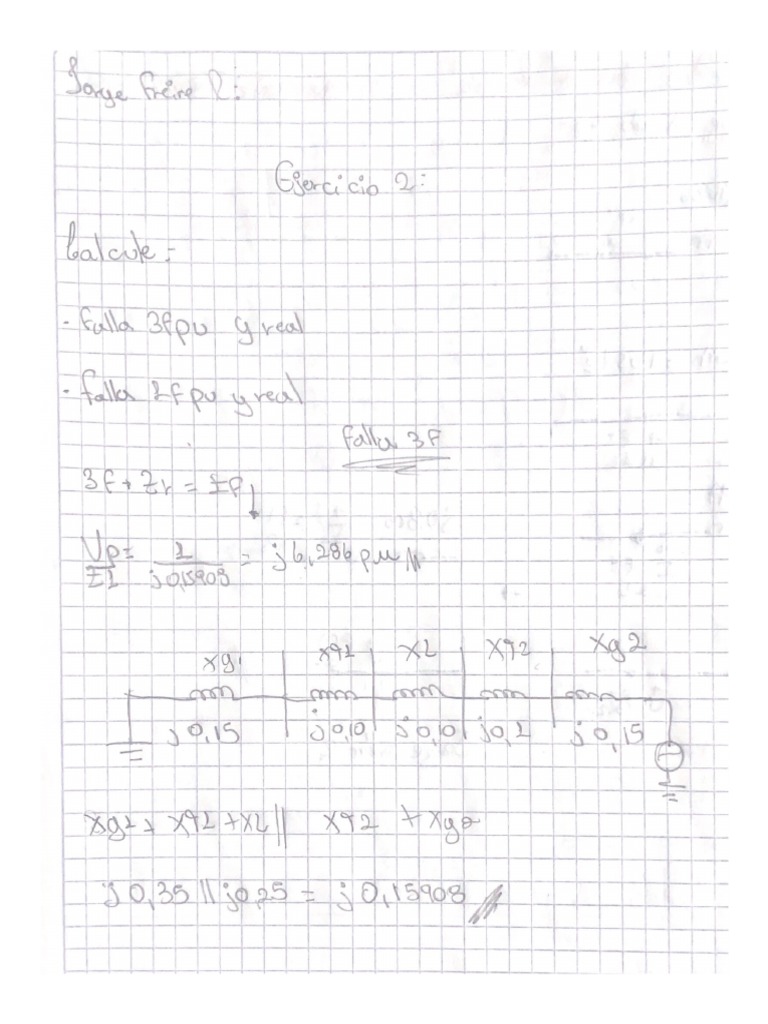 Jorge Freire R:
Ejercicio 2:
Calcule:
- falla 3f pu y real
- falla 1f pu y real
Falla 3F
3f + Zr = If
Vp = 1 = j6,286 pu
Z1 j0,15908
xg1 XT1 XL XT2 Xg2
j0,15 j0,10 j0,10 j0,1 j0,15
Xg1 + XT1 + XL || XT2 + Xg2
j0,35 || j0,25 = j0,15908